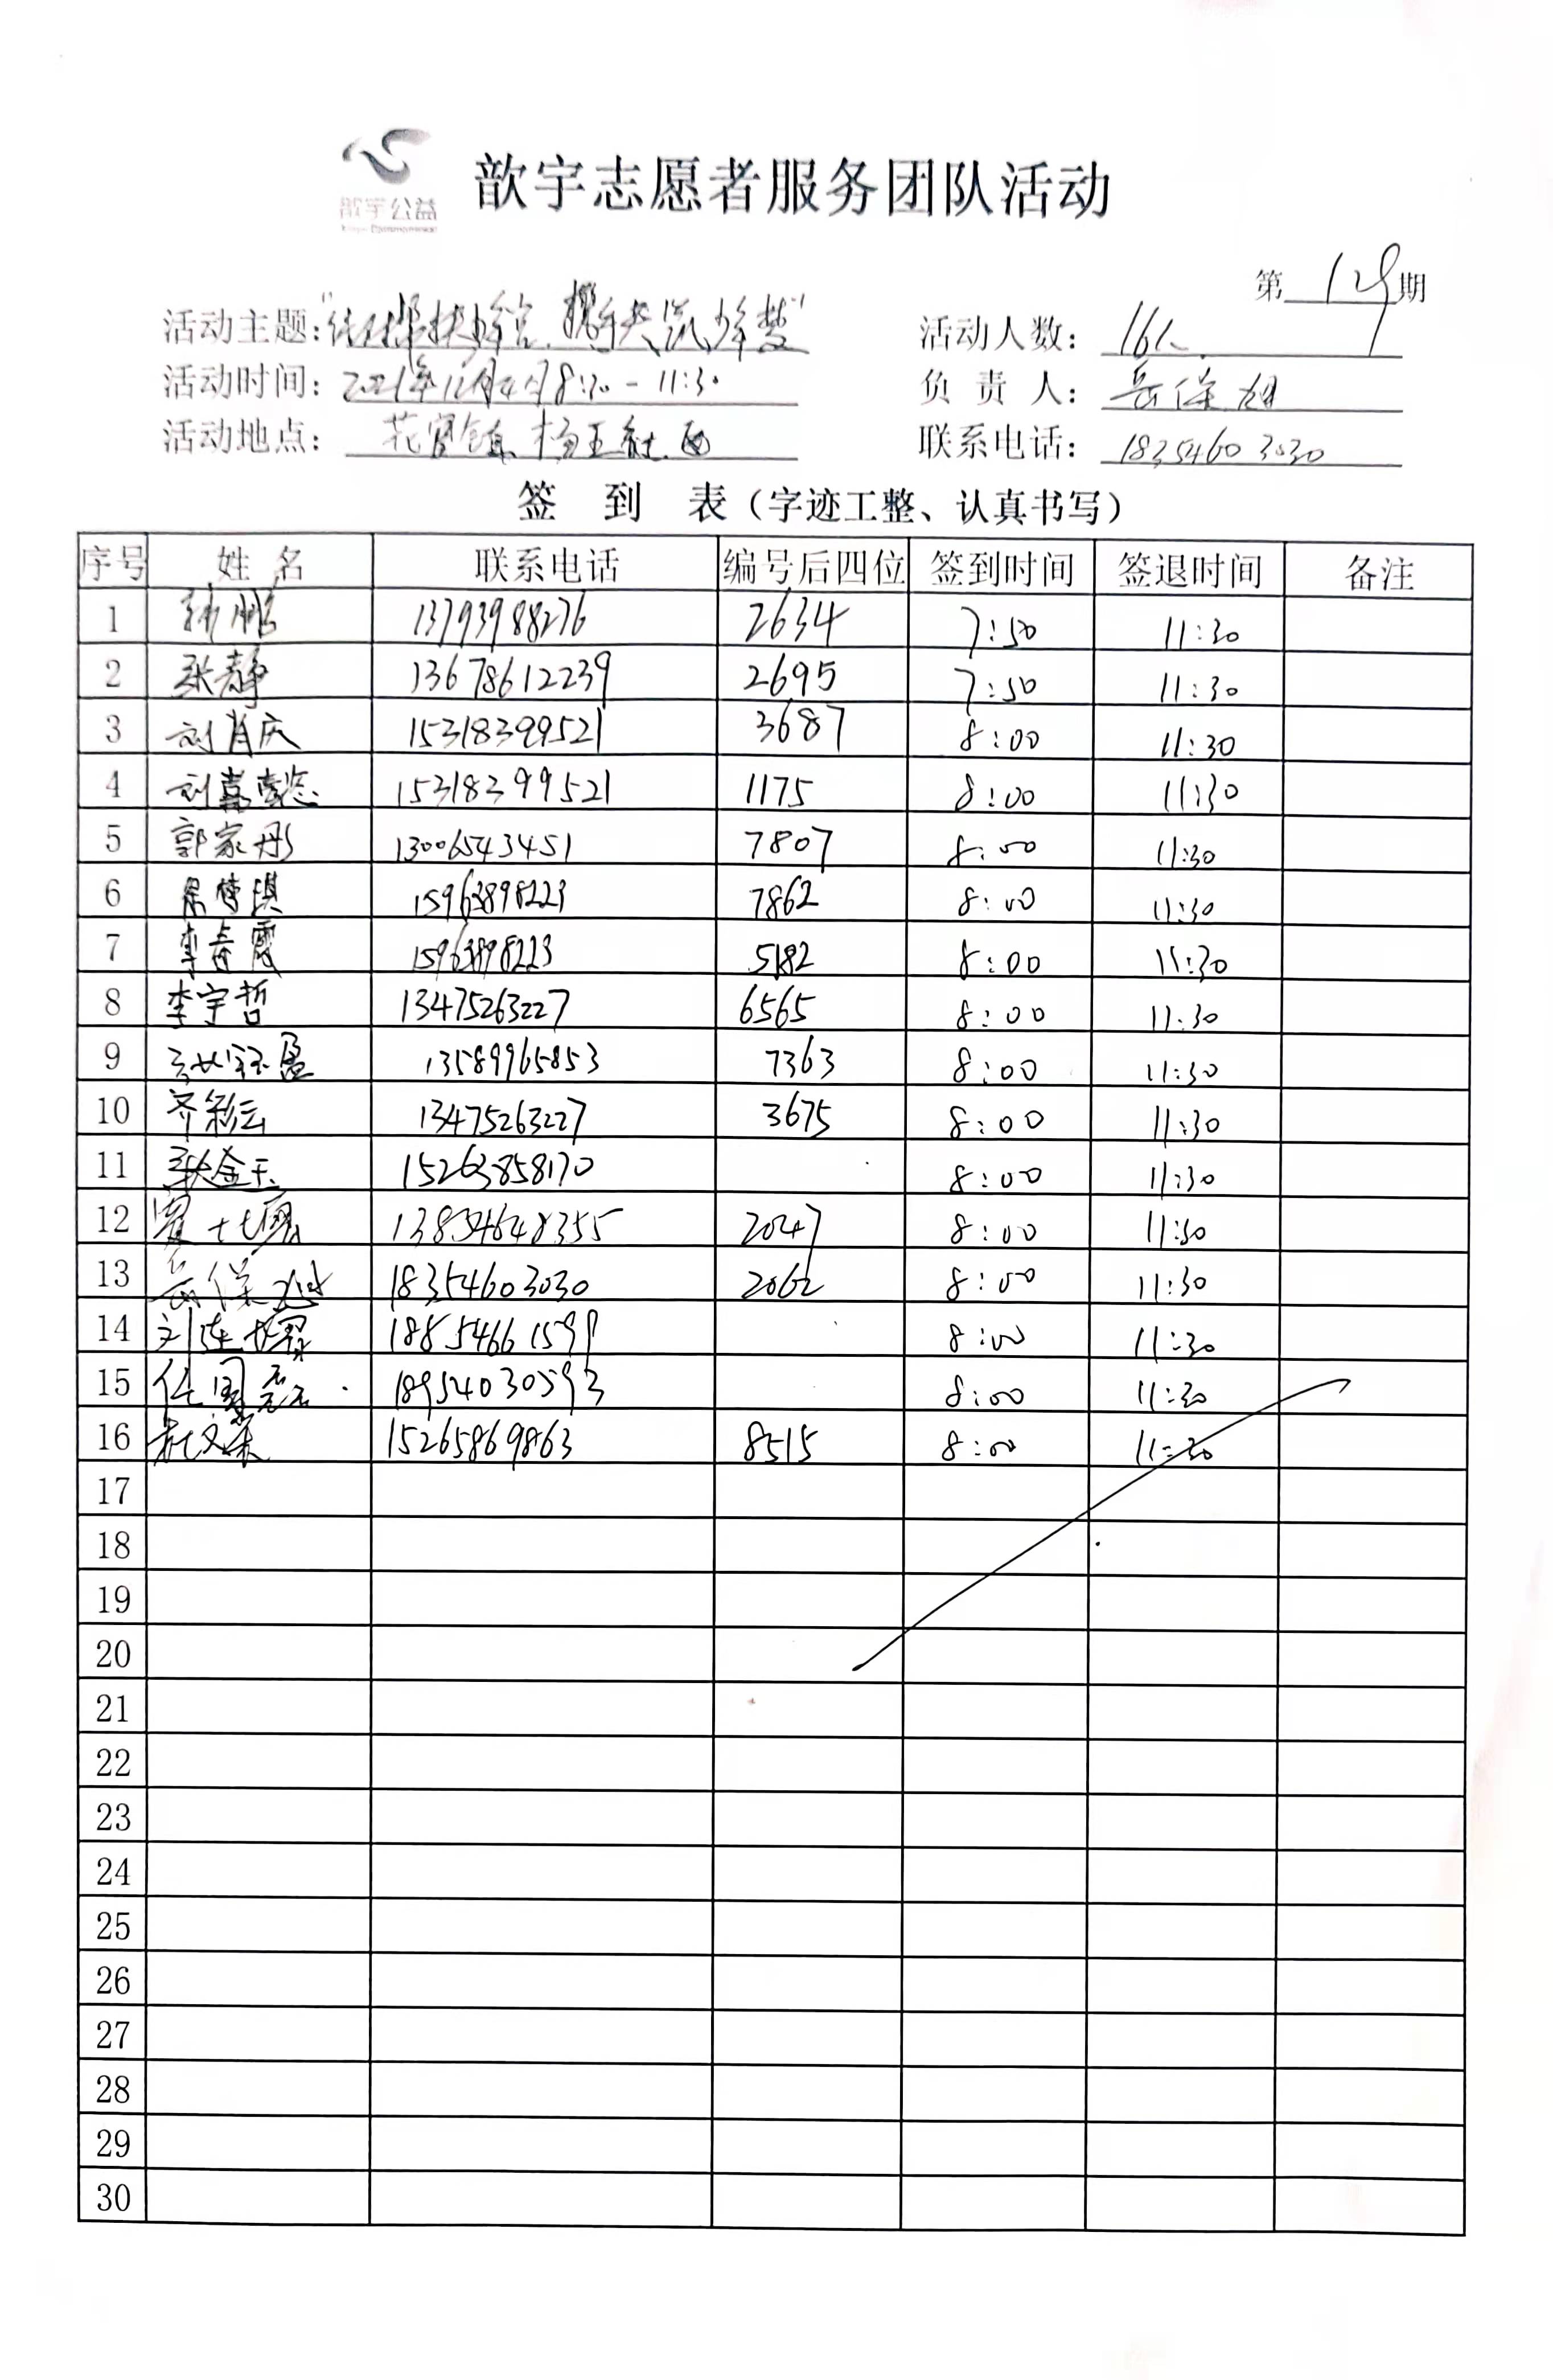 歆宇公益
歆宇志愿者服务团队活动
第 129 期
活动主题：
活动人数：16人
活动时间：2021年12月4日8:30-11:30
负 责 人：岳保旭
活动地点：花官镇 杨王社区
联系电话：18354603030
签 到 表（字迹工整、认真书写）
序号 姓 名 联系电话 编号后四位 签到时间 签退时间 备注
1 13793988276 2634 7:50 11:30
2 张静 13678612239 2695 7:50 11:30
3 刘肖庆 15318399521 3687 8:00 11:30
4 15318399521 1175 8:00 11:30
5 郭家彤 13006543451 7807 8:00 11:30
6 15963898223 7862 8:00 11:30
7 李春霞 15963898223 5182 8:00 11:30
8 李宇哲 13475263227 6565 8:00 11:30
9 13589965853 7363 8:00 11:30
10 齐彩云 13475263227 3675 8:00 11:30
11 张金玉 15263858170 8:00 11:30
12 13854648355 2047 8:00 11:30
13 岳保旭 18354603030 2062 8:00 11:30
14 18854661599 8:00 11:30
15 任国 18954030593 8:00 11:30
16 杜文 15265869863 8515 8:00 11:30
17
18
19
20
21
22
23
24
25
26
27
28
29
30